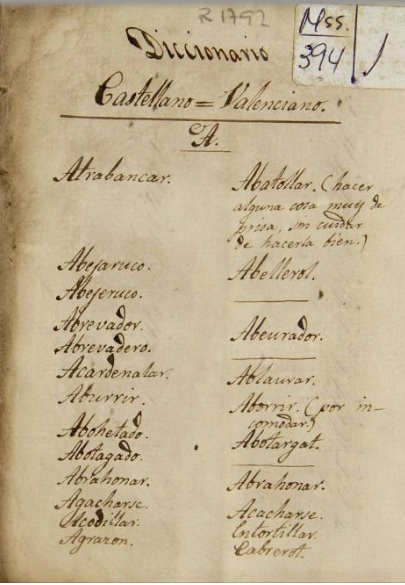 R 1792
Mss.
394
Diccionario
Castellano = Valenciano.
A.
Atrabancar. Abatollar. (hacer
alguna cosa muy de
prisa, sin cuidar
de hacerla bien.)
Abejaruco. Abellerol.
Abejeruco.
Abrevador. Abeurador.
Abrevadero.
Acardenalar. Ablaurar.
Aburrir. Aborrir. (por in-
comodar.)
Abohetado. Abotargat.
Abotagado.
Abrahonar. Abrahonar.
Agacharse. Acacharse.
Acodillar. Entortillar.
Agrazon. Cabrerot.